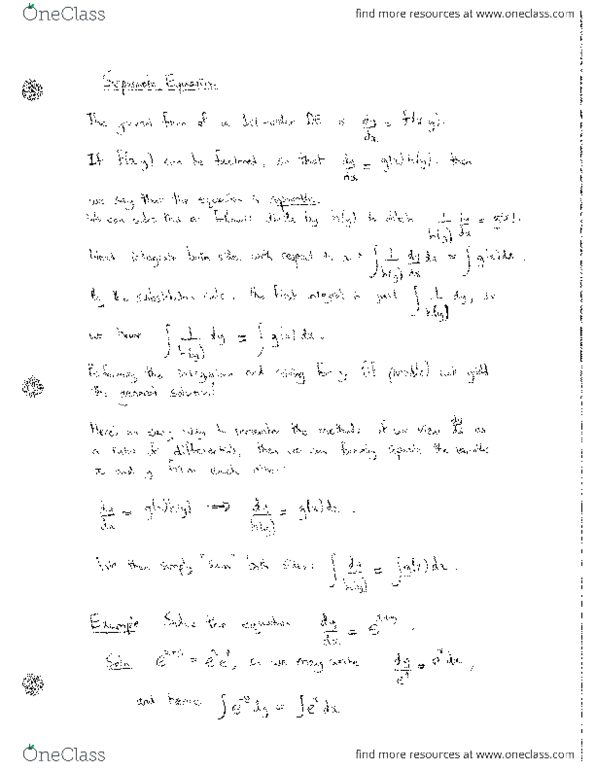 OneClass
find more resources at www.oneclass.com
Separable Equations
The general form of a 1st-order DE is dy/dx = f(x,y).
If f(x,y) can be factored, so that dy/dx = g(x)h(y), then
we say that the equation is separable.
We can solve this as follows: divide by h(y) to obtain 1/h(y) dy/dx = g(x).
integrate both sides with respect to x: ∫ 1/h(y) dy/dx dx = ∫ g(x) dx.
By the substitution rule, the first integral is just ∫ 1/h(y) dy, so
we have ∫ 1/h(y) dy = ∫ g(x) dx.
Performing the integration and solving for y (if possible) will yield
the general solution.
Here's an easy way to remember the method: if we view dy/dx as
a ratio of differentials, then we can formally separate the
x and y from each other:
dy/dx = g(x)h(y) ⟹ dy/h(y) = g(x) dx.
We then simply "sum" both sides: ∫ dy/h(y) = ∫ g(x) dx.
Example Solve the equation dy/dx = e^(x+y).
Soln e^(x+y) = e^x e^y, so we may write dy/e^y = e^x dx,
and hence ∫ e^-y dy = ∫ e^x dx
OneClass
find more resources at www.oneclass.com